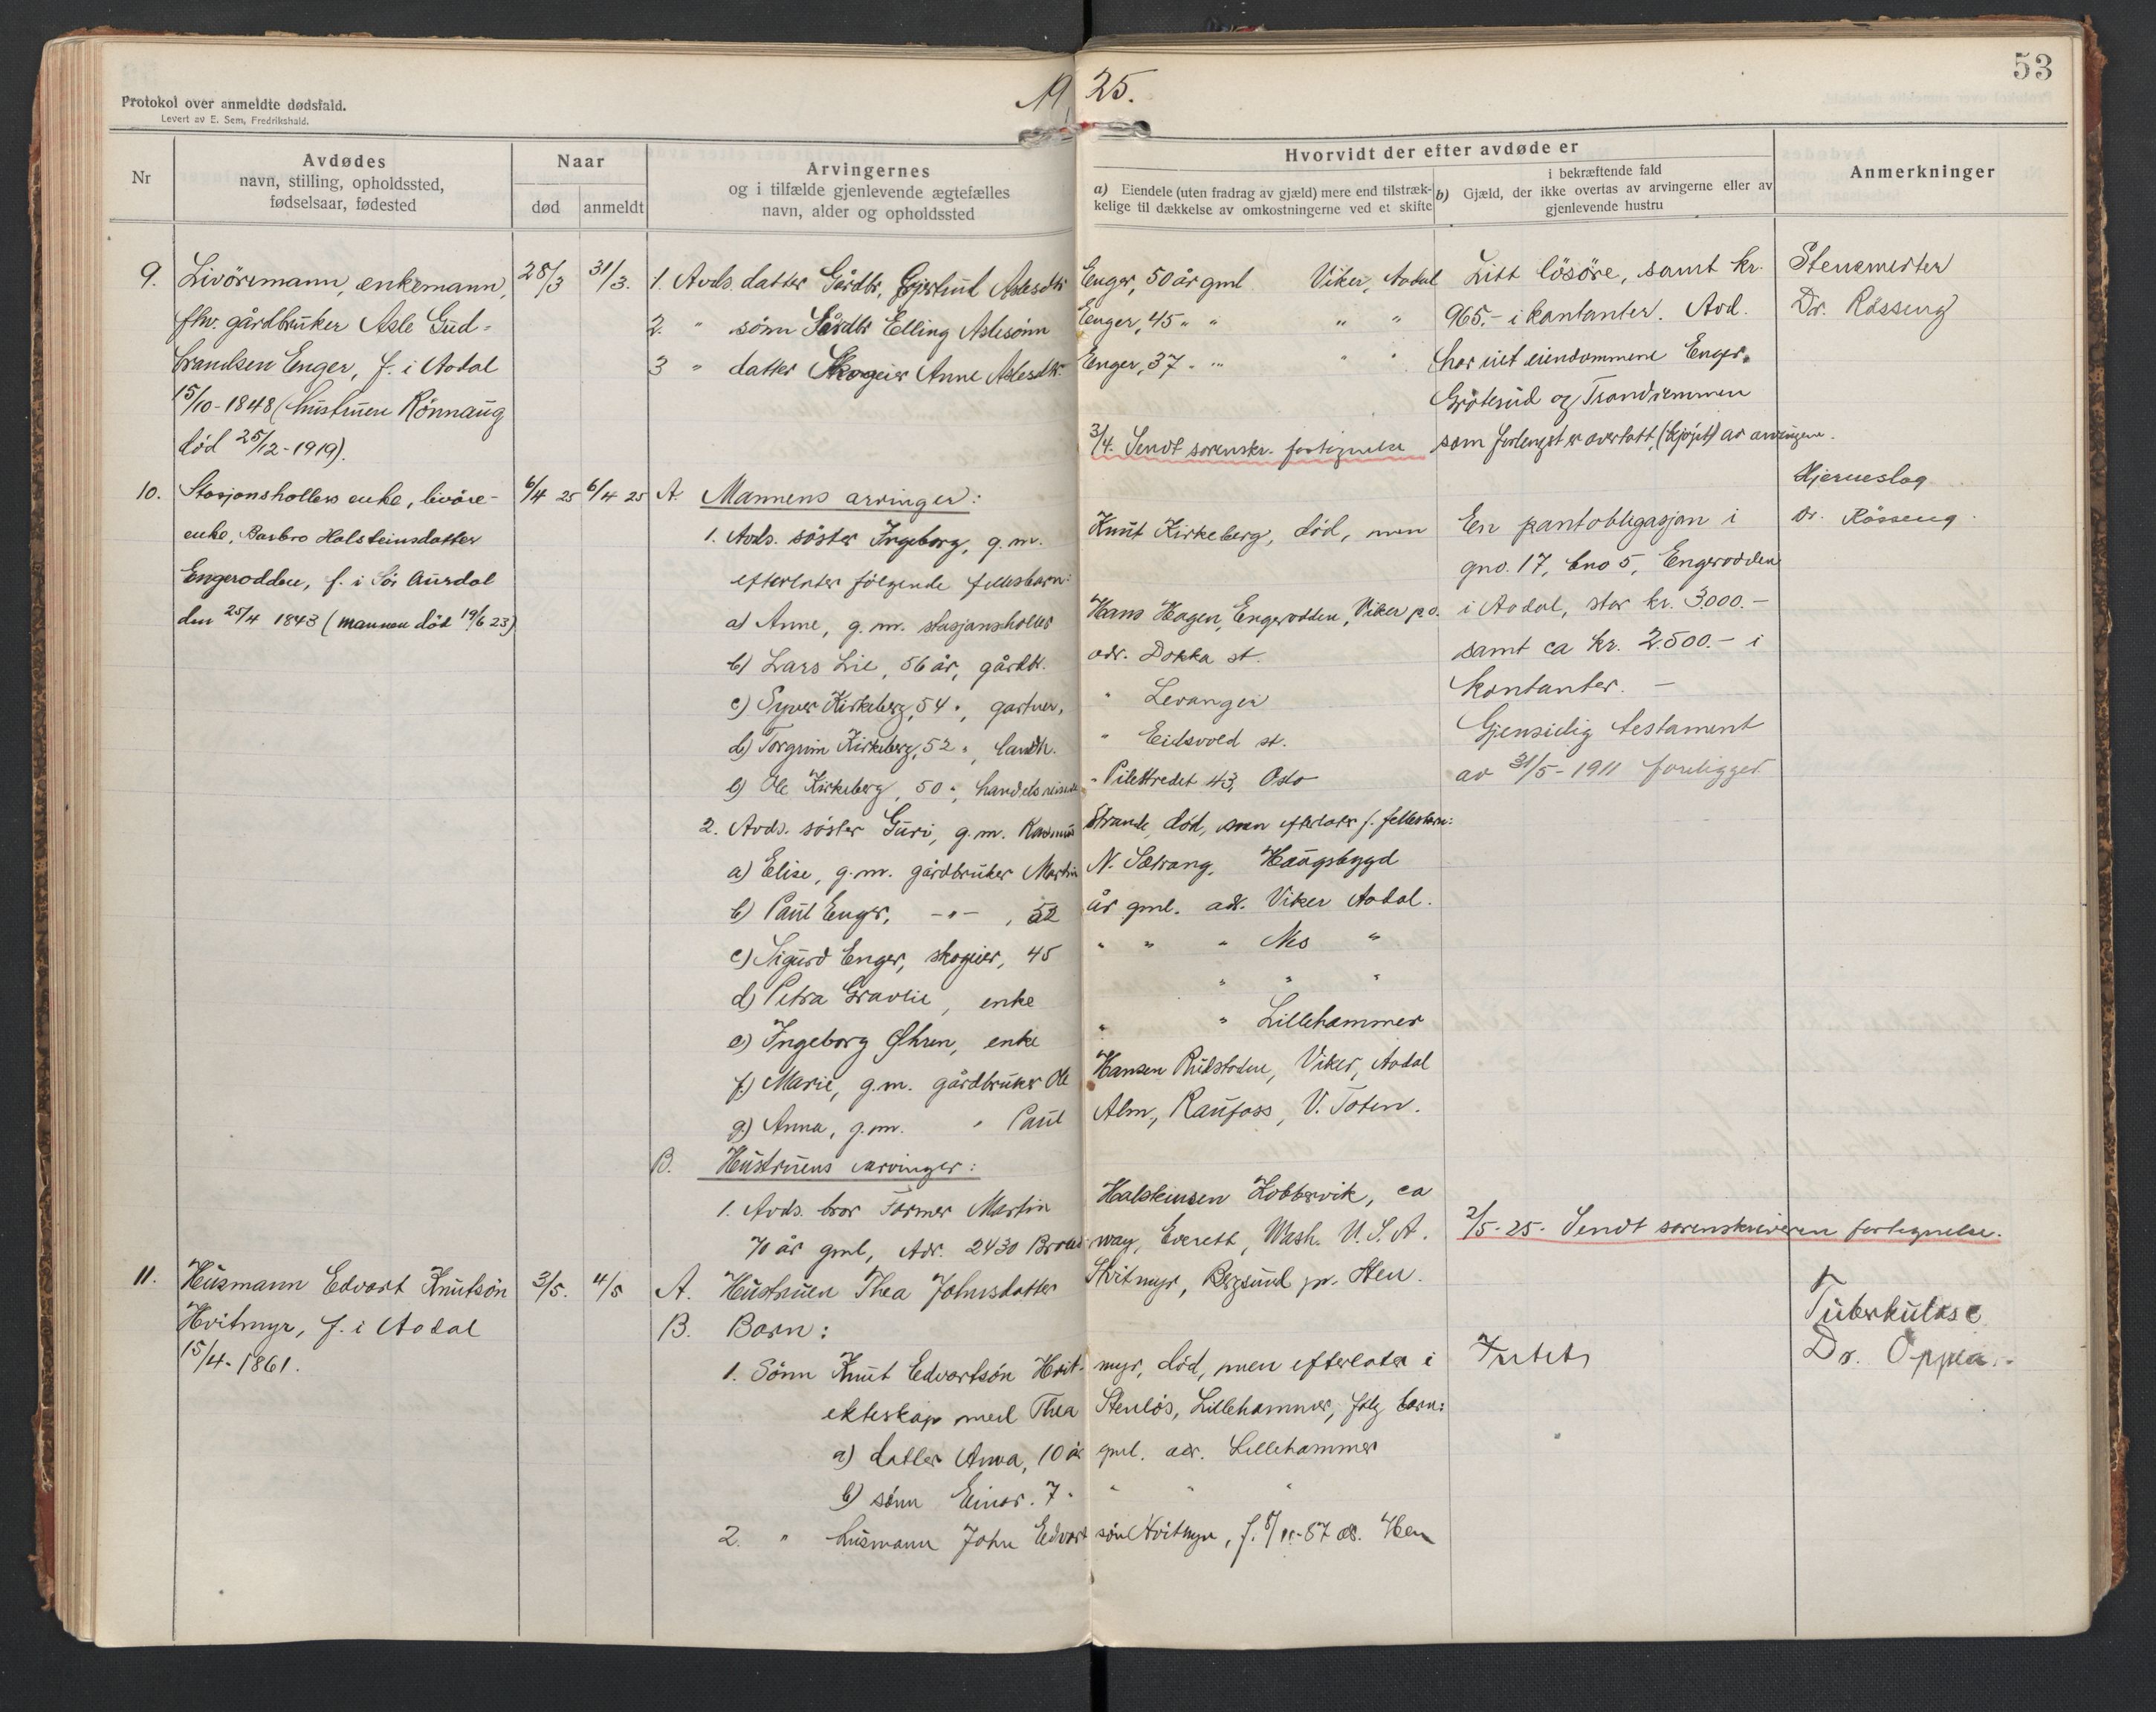 53
Protokol over anmeldte dødsfald.
Levert av E. Sem, Fredrikshald.
19 25.
Nr
Avdødes
navn, stilling, opholdssted,
fødselsaar, fødested
Naar
død
anmeldt
Arvingernes
og i tilfælde gjenlevende ægtefælles
navn, alder og opholdssted
Hvorvidt der efter avdøde er
a) Eiendele (uten fradrag av gjæld) mere end tilstræk-
kelige til dækkelse av omkostningerne ved et skifte
i bekræftende fald
b) Gjæld, der ikke overtas av arvingerne eller av
gjenlevende hustru
Anmerkninger
9.
Livöremann, enkemann,
fhv. gårdbruker Asle Gud-
brandsen Enger, f. i Aadal
15/10-1848 (hustruen Rönnaug
död 25/12-1919).
28/3
31/3.
1. Avds. datter Gårdbr. Gjertrud Aslesdtr Enger, 50 år gml. Viker, Aadal
2. " sönn Gårdbr Elling Aslesönn Enger, 45 " " " "
3 " datter Skogeier Anne Aslesdtr. Enger, 37 " " " "
3/4. Sendt sorenskr. fortegnelse
Litt lösöre, samt kr.
965.- i kontanter. Avd.
har eiet eiendommene Enger,
Grötesud og
som forlengst er overtatt (kjöpt) av arvingene.
Dr. Rösseng
10.
Stasjonsholders enke, livöre-
enke, Barbro Halsteinsdatter
Engerodden, f. i Sör Aurdal
den 25/4 1843 (mannen död 19/6 23)
6/4 25
6/4 25
A. Mannens arvinger:
1. Avds. söster Ingeborg, g.m. Knut Kirkeberg, död, men
efterlater fölgende fellesbarn:
a) Anne, g.m. stasjonsholder Hans Hagen, Engerodden, Viker p.o.
b) Lars Lie, 56 år, gårdbr. adr. Dokka st.
c) Syver Kirkeberg, 54 ", gartner, " Levanger
d) Torgrim Kirkeberg, 52 ", landh. " Eidsvold st.
e) Ole Kirkeberg, 50 ", handelsreisende " Pilestredet 43, Oslo
2. Avds. söster Guri, g.m. Rasmus Strande, död, men efterlater f. fellesbarn:
a) Elise, g.m. gårdbruker Martin N. Sætrang, Haugsbygd
b) Paul Enger, -"-, 52 år gml. adr. Viker Aadal.
c) Sigurd Enger, skogeier, 45 " " " Nes "
d) Petra Gravlie, enke " " "
e) Ingeborg Øhren, enke " " Lillehammer
f) Marie, g.m. gårdbruker Ole Hansen Rudstaden, Viker, Aadal
g) Anna, g.m. " Paul Alm, Raufoss, V. Toten.
B. Hustruens arvinger:
1. Avds. bror Farmer Martin Halsteinsen Kobbervik, ca
70 år gml, Adr. 2430 Broadway, Everett, Wash. U.S.A.
En pantobligasjon i
gno. 17, bno 5, Engerodden
i Aadal, stor kr. 3000.-
samt ca kr. 2.500.- i
kontanter. -
Gjensidig testament
av 31/5-1911 foreligger.
2/5-25. Sendt sorenskriveren fortegnelse.
Hjerneslag
Dr. Rösseng.
11.
Husmann Edvart Knutsön
Hvitmyr, f. i Aadal
15/4-1861.
3/5.
4/5
A. Hustruen Thea Johnsdatter Hvitmyr, Bergsund pr. Hen.
B. Barn:
1. Sönn Knut Edvartsön Hvitmyr, död, men efterlater i
ekteskap med Thea Stenlös, Lillehammer, fölg barn:
a) datter Anna, 10 år gml. adr. Lillehammer
b) sönn Einar. 7 " " " "
2. " husmann John Edvartsön Hvitmyr, adr. Hen
Intet
Tuberkulose
Dr. Oppen.